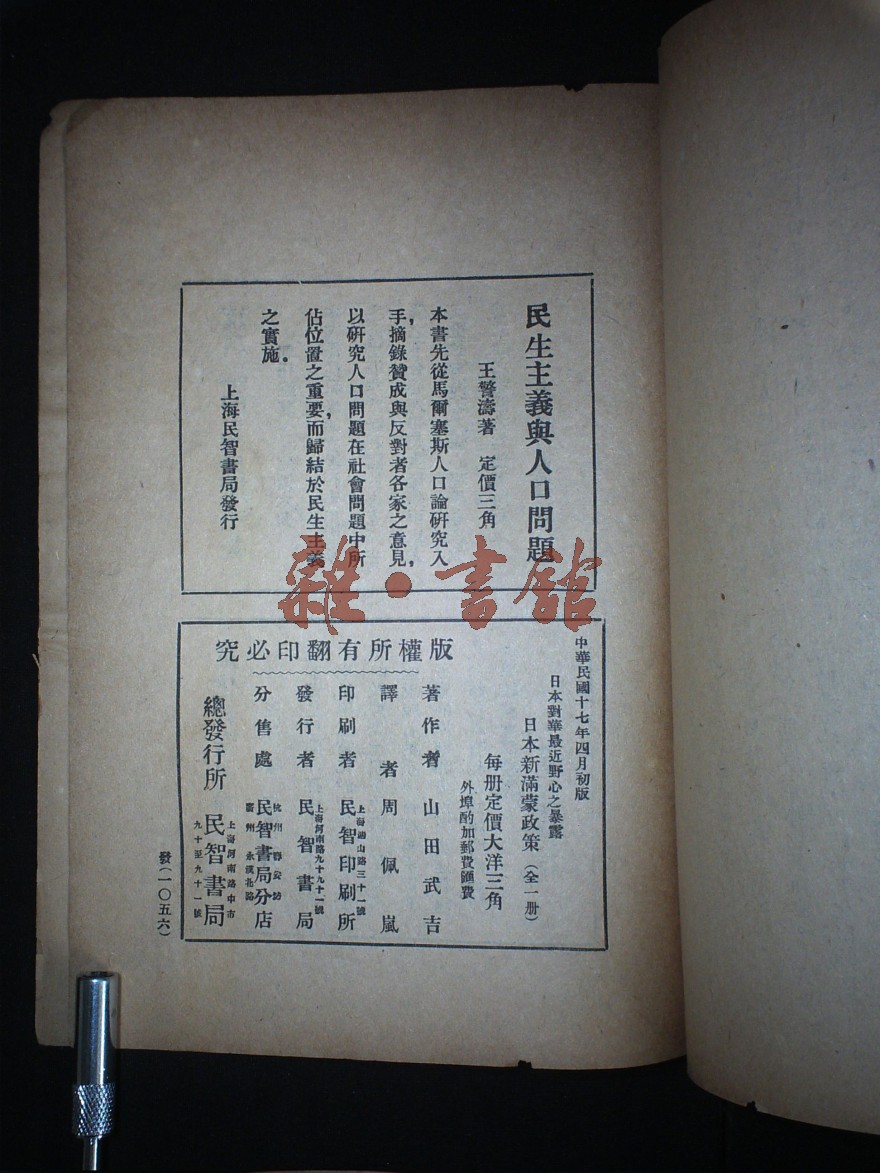 民生主義與人口問題
王警濤著 定價三角
本書先從馬爾塞斯人口論研究入
手，摘錄贊成與反對者各家之意見，
以研究人口問題在社會問題中所
佔位置之重要，而歸結於民生主義
之實施。
上海民智書局發行
雜·書館
中華民國十七年四月初版
日本對華最近野心之暴露
日本新滿蒙政策（全一册）
每册定價大洋三角
外埠酌加郵費匯費
版權所有翻印必究
著作者 山田武吉
譯者 周佩嵐
印刷者 民智印刷所
發行者 上海河南路九十九十一號 民智書局
分售處 杭州 廣州 永漢北路 民智書局分店
總發行所 上海河南路中市 九十至九十一號 民智書局
發（一〇五六）